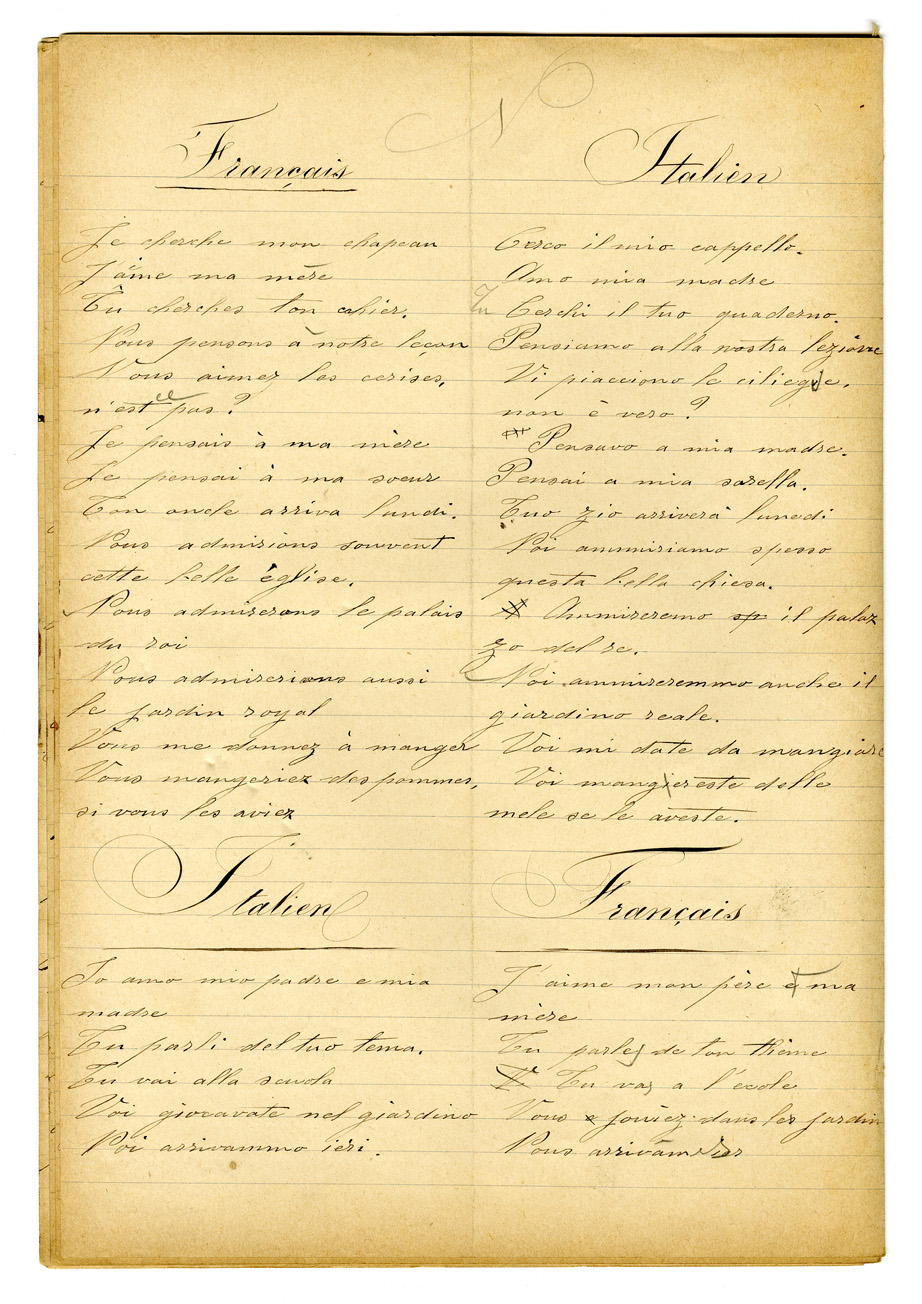 Français
Je cherche mon chapeau
J'aime ma mère
Tu cherches ton cahier.
Nous pensons à notre leçon
Vous aimez les cerises,
n'est ce pas ?
Je pensais à ma mère
Je pensai à ma soeur
Ton oncle arriva lundi.
Nous admirions souvent
cette belle église.
Nous admirerons le palais
du roi
Nous admirerions aussi
le jardin royal
Vous me donnez à manger
Vous mangeriez des pommes,
si vous les aviez
Italien
Cerco il mio cappello.
Amo mia madre
Tu Cerchi il tuo quaderno.
Pensiamo alla nostra lezione
Vi piacciono le ciliegie.
non è vero ?
Pensavo a mia madre.
Pensai a mia sorella.
Tuo zio arriverà lunedi
Noi ammiriamo spesso
questa bella chiesa.
Ammireremo sp il palaz
zo del re.
Noi ammireremmo anche il
giardino reale.
Voi mi date da mangiare
Voi mangiereste delle
mele se le aveste.
Italien
Io amo mio padre e mia
madre
Tu parli del tuo tema.
Tu vai alla scuola
Voi giocavate nel giardino
Noi arrivammo ieri.
Français
J'aime mon père et ma
mère
Tu parles de ton thème
Tu vas a l'école
Vous jouiez dans les jardin
Nous arrivâmes